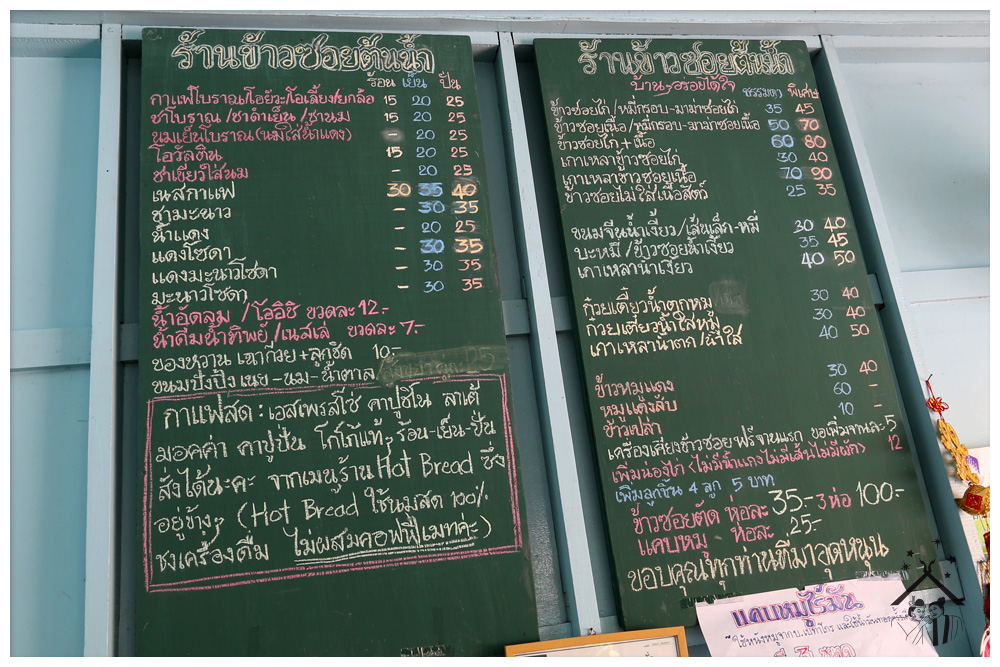 ร้านข้าวซอยต้นน้ำ
ร้อน เย็น ปั่น
กาแฟโบราณ/โอยัวะ/โอเลี้ยง/ยกล้อ 15 20 25
ชาโบราณ/ชาดำเย็น/ชานม 15 20 25
นมเย็นโบราณ(นมใส่น้ำแดง) - 20 25
โอวัลติน 15 20 25
ชาเขียวใส่นม - 20 25
เนสกาแฟ 30 35 40
ชามะนาว - 30 35
น้ำแดง - 20 25
แดงโซดา - 30 35
แดงมะนาวโซดา - 30 35
มะนาวโซดา - 30 35
น้ำอัดลม /โออิชิ ขวดละ 12.-
น้ำดื่มน้ำทิพย์/เนสเล่ ขวดละ 7.-
ของหวาน เฉาก๊วย+ลูกชิด 10.-
ขนมปังปิ้ง เนย-นม-น้ำตาล
กาแฟสด: เอสเพรสโซ่ คาปูชิโน ลาเต้
มอคค่า คาปูปั่น โกโก้แท้ๆ ร้อน-เย็น-ปั่น
สั่งได้นะคะ จากเมนูร้าน Hot Bread ซึ่ง
อยู่ข้างๆ (Hot Bread ใช้นมสด 100%
ชงเครื่องดื่ม ไม่ผสมคอฟฟี่เมทค่ะ)
ร้านข้าวซอยต้นน้ำ
บ้านๆอร่อยได้ใจ ธรรมดา พิเศษ
ข้าวซอยไก่/หมี่กรอบ-มาม่าซอยไก่ 35 45
ข้าวซอยเนื้อ/หมี่กรอบ-มาม่าซอยเนื้อ 50 70
ข้าวซอยไก่+เนื้อ 60 80
เกาเหลาข้าวซอยไก่ 30 40
เกาเหลาข้าวซอยเนื้อ 70 90
ข้าวซอยไม่ใส่เนื้อสัตว์ 25 35
ขนมจีนน้ำเงี้ยว/เส้นเล็ก-หมี่ 30 40
บะหมี่/ข้าวซอยน้ำเงี้ยว 35 45
เกาเหลาน้ำเงี้ยว 40 50
ก๋วยเตี๋ยวน้ำตกหมู 30 40
ก๋วยเตี๋ยวน้ำใสหมู 30 40
เกาเหลาน้ำตก/น้ำใส 40 50
ข้าวหมูแดง 30 40
หมูแดงสับ 60 -
ข้าวเปล่า 10 -
เครื่องเคียงข้าวซอยฟรีจานแรก ขอเพิ่มจานละ 5
เพิ่มน่องไก่ (ไม่มีน้ำแกงไม่มีเส้นไม่มีผัก) 12
เพิ่มลูกชิ้น 4 ลูก 5 บาท
ข้าวซอยตัด ห่อละ 35.- 3 ห่อ 100.-
แคบหมู ห่อละ 25.-
ขอบคุณทุกท่านที่มาอุดหนุน
แคบหมูไร้มัน